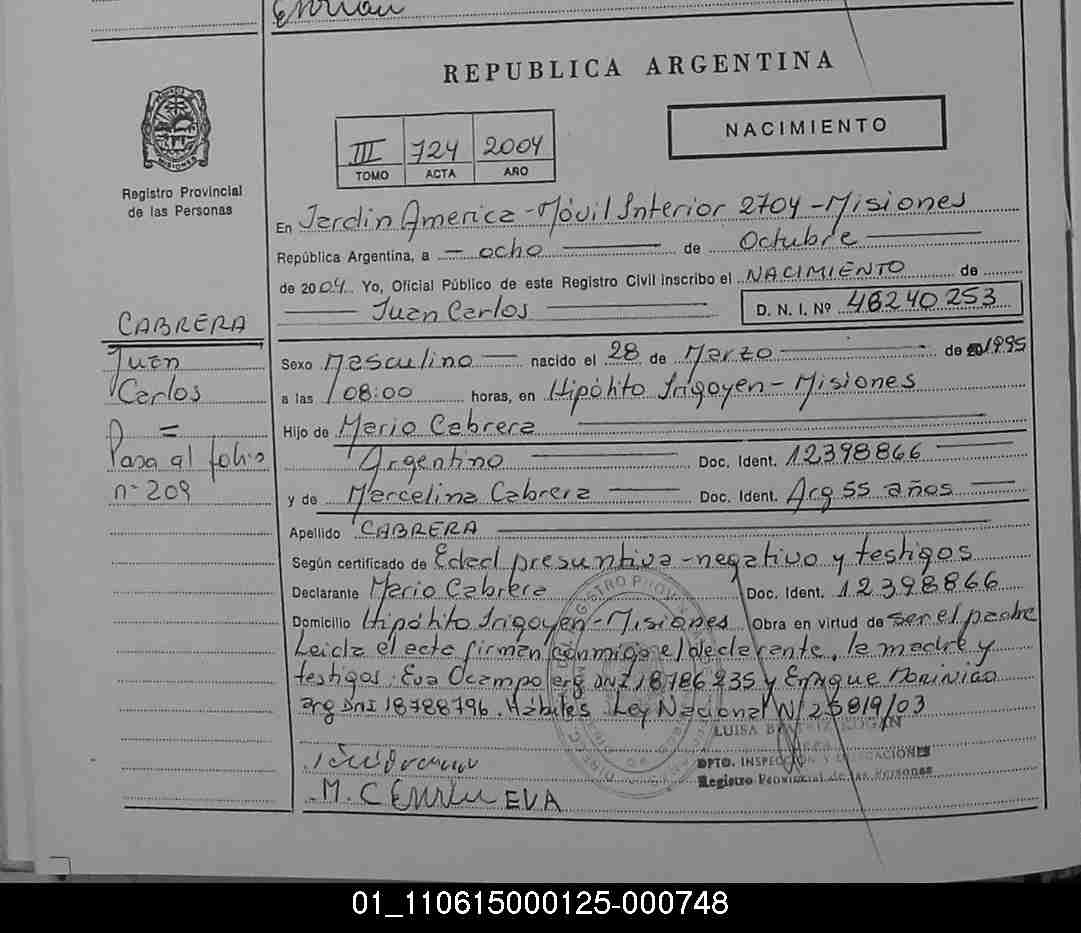 Enrian
REPUBLICA ARGENTINA
NACIMIENTO
III 724 2004
TOMO ACTA AÑO
PROVINCIA DE MISIONES
Registro Provincial
de las Personas
En Jardin America - Móvil Interior 2704 - Misiones
República Argentina, a - ocho de Octubre
de 2004. Yo, Oficial Público de este Registro Civil inscribo el NACIMIENTO de
Juan Carlos D. N. I. Nº 46240253
CABRERA
Juan
Carlos
=
Pasa al folio
nº 209
Sexo Masculino nacido el 28 de Marzo de 1995
a las 08:00 horas, en Hipólito Irigoyen - Misiones
Hijo de Mario Cabrera
Argentino Doc. Ident. 12398866
y de Marcelina Cabrera Doc. Ident. Arg 55 años
Apellido CABRERA
Según certificado de Edad presuntiva - negativo y testigos
Declarante Mario Cabrera Doc. Ident. 12398866
Domicilio Hipólito Irigoyen - Misiones Obra en virtud de ser el padre
Leida el acta firman conmigo el declarante, la madre y
testigos: Eva Ocampo arg DNI 18786235 y Enrique
arg DNI 18788796. Hábiles Ley Nacional Nº 25819/03
LUISA KOGAN
DPTO. INSPECCION Y
Registro Provincial de las Personas
M. C EVA
01_110615000125-000748